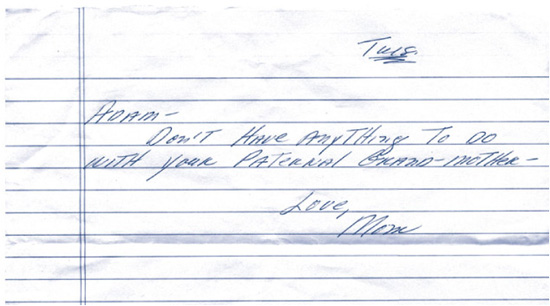 Tues.
ADAM-
DON'T HAVE ANYTHING TO DO
WITH YOUR PATERNAL GRAND-MOTHER-
Love,
Mom